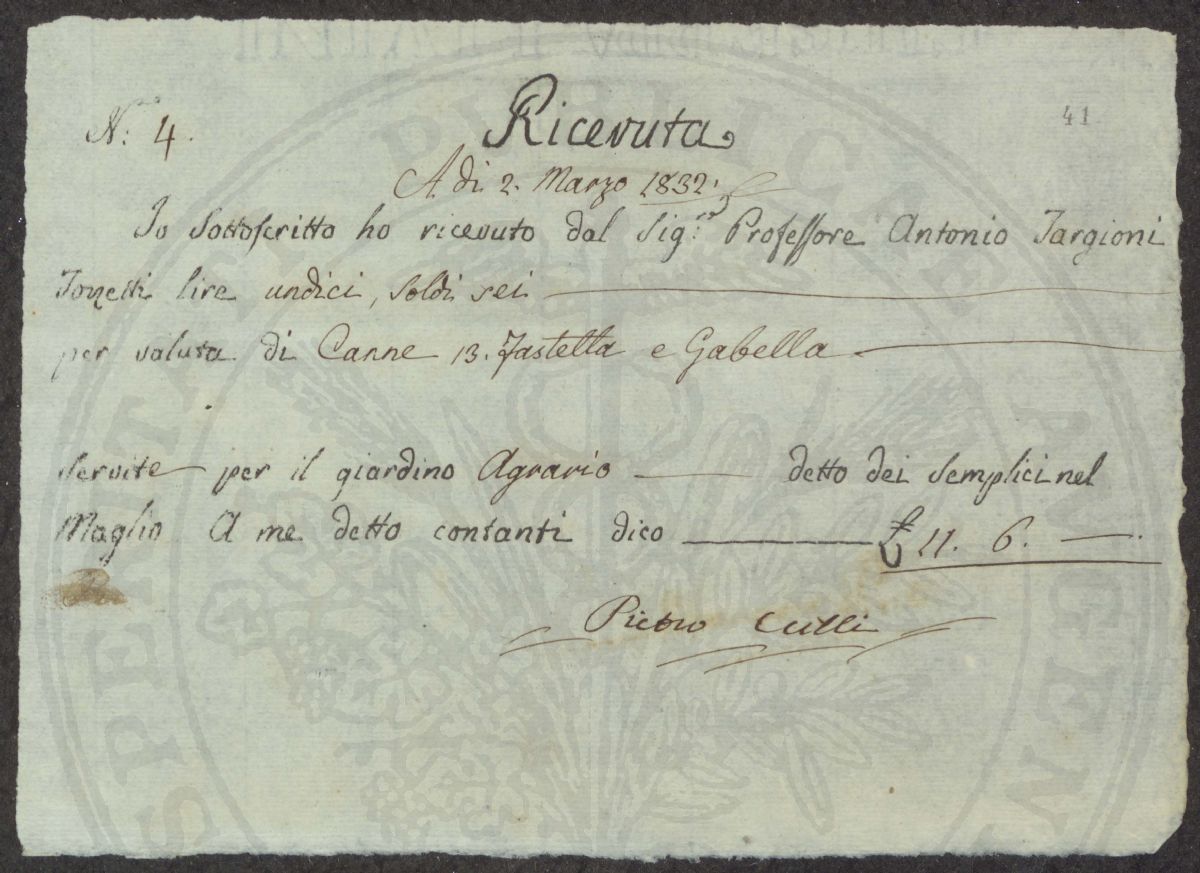 N. 4.
Ricevuta
41
A di 2. Marzo 1832.
Io Sottoscritto ho ricevuto dal Sig.re Professore Antonio Targioni
Tozzetti lire undici, soldi sei
per valuta di Canne 13. fastella e Gabella
servite per il giardino Agrario detto dei Semplici nel
Maglio A me detto contanti dico £ 11. 6. —.
Pietro Culli
PROSPERITATI PUBLICAE AUGENDAE